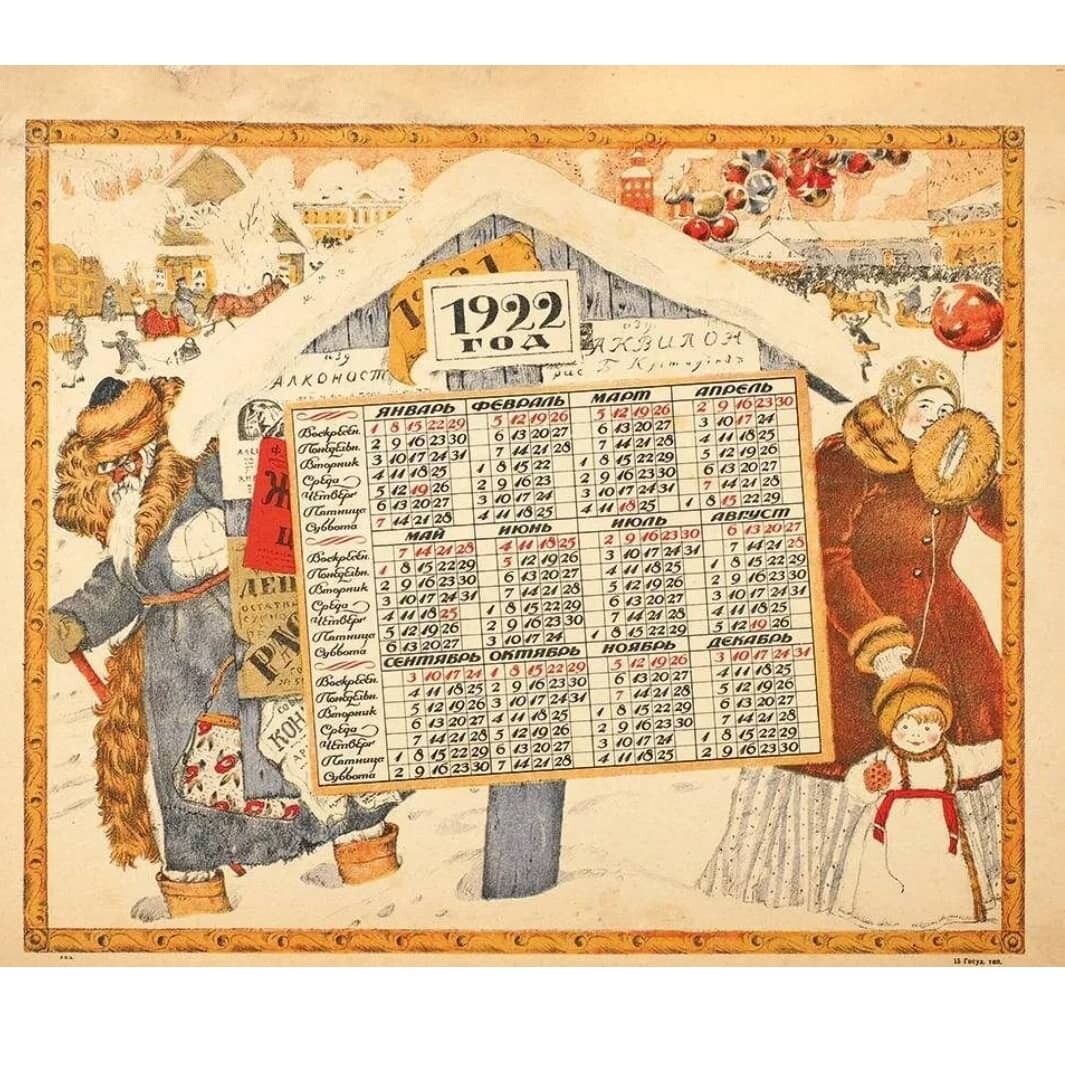 1921
1922
ГОД
изд
АЛКОНОСТ
изд
АКВИЛОН
рис Б Кустодiевъ
ТЕАТРЪ
ЯНВАРЬ ФЕВРАЛЬ МАРТ АПРЕЛЬ
Воскресен. 1 8 15 22 29 5 12 19 26 5 12 19 26 2 9 16 23 30
Понедельн. 2 9 16 23 30 6 13 20 27 6 13 20 27 3 10 17 24
Вторник 3 10 17 24 31 7 14 21 28 7 14 21 28 4 11 18 25
Среда 4 11 18 25 1 8 15 22 1 8 15 22 29 5 12 19 26
Четверг 5 12 19 26 2 9 16 23 2 9 16 23 30 6 13 20 27
Пятница 6 13 20 27 3 10 17 24 3 10 17 24 31 7 14 21 28
Суббота 7 14 21 28 4 11 18 25 4 11 18 25 1 8 15 22 29
МАЙ ИЮНЬ ИЮЛЬ АВГУСТ
Воскресен. 7 14 21 28 4 11 18 25 2 9 16 23 30 6 13 20 27
Понедельн. 1 8 15 22 29 5 12 19 26 3 10 17 24 31 7 14 21 28
Вторник 2 9 16 23 30 6 13 20 27 4 11 18 25 1 8 15 22 29
Среда 3 10 17 24 31 7 14 21 28 5 12 19 26 2 9 16 23 30
Четверг 4 11 18 25 1 8 15 22 29 6 13 20 27 3 10 17 24 31
Пятница 5 12 19 26 2 9 16 23 30 7 14 21 28 4 11 18 25
Суббота 6 13 20 27 3 10 17 24 1 8 15 22 29 5 12 19 26
СЕНТЯБРЬ ОКТЯБРЬ НОЯБРЬ ДЕКАБРЬ
Воскресен. 3 10 17 24 1 8 15 22 29 5 12 19 26 3 10 17 24 31
Понедельн. 4 11 18 25 2 9 16 23 30 6 13 20 27 4 11 18 25
Вторник 5 12 19 26 3 10 17 24 31 7 14 21 28 5 12 19 26
Среда 6 13 20 27 4 11 18 25 1 8 15 22 29 6 13 20 27
Четверг 7 14 21 28 5 12 19 26 2 9 16 23 30 7 14 21 28
Пятница 1 8 15 22 29 6 13 20 27 3 10 17 24 1 8 15 22 29
Суббота 2 9 16 23 30 7 14 21 28 4 11 18 25 2 9 16 23 30
ДЕП
ОСТАТК
РАС
КОН
15 Госуд. тип.